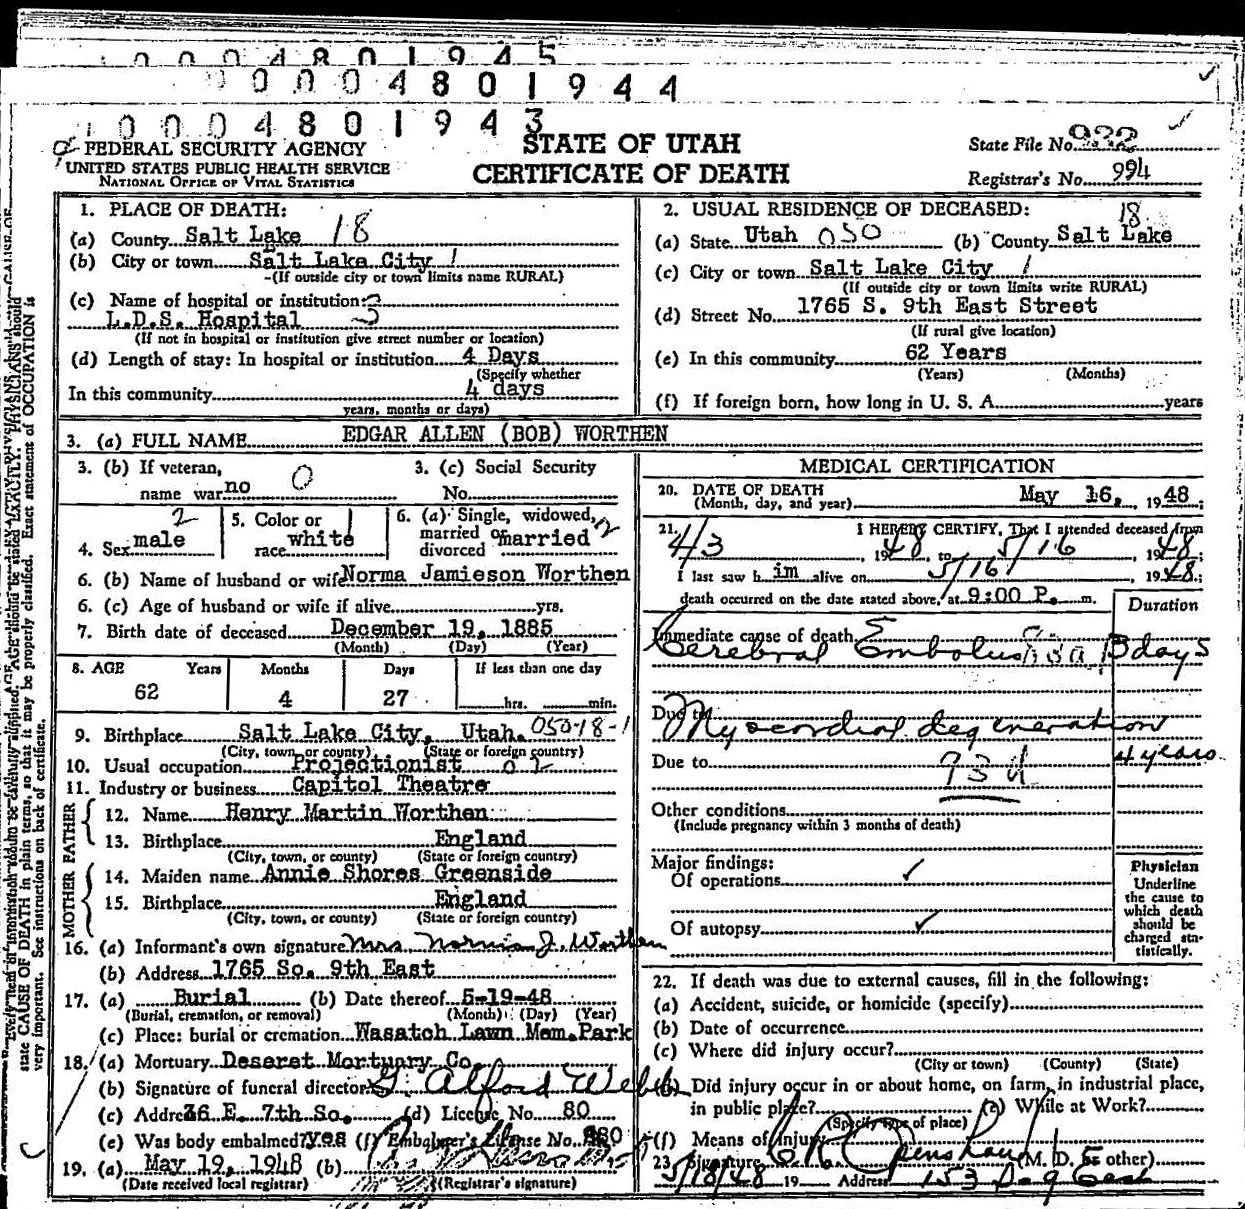 0 0 0 4 8 0 1 9 4 5
0 0 0 4 8 0 1 9 4 4
0 0 0 4 8 0 1 9 4 3
FEDERAL SECURITY AGENCY
UNITED STATES PUBLIC HEALTH SERVICE
NATIONAL OFFICE OF VITAL STATISTICS
STATE OF UTAH
CERTIFICATE OF DEATH
State File No. 932
Registrar's No. 994
1. PLACE OF DEATH:
(a) County Salt Lake 18
(b) City or town Salt Lake City 1
(If outside city or town limits name RURAL)
(c) Name of hospital or institution: 3
L.D.S. Hospital
(If not in hospital or institution give street number or location)
(d) Length of stay: In hospital or institution 4 Days
(Specify whether
In this community 4 days
years, months or days)
2. USUAL RESIDENCE OF DECEASED:
18
(a) State Utah 050 (b) County Salt Lake
(c) City or town Salt Lake City 1
(If outside city or town limits write RURAL)
(d) Street No. 1765 S. 9th East Street
(If rural give location)
(e) In this community 62 Years
(Years) (Months)
(f) If foreign born, how long in U. S. A. years
3. (a) FULL NAME EDGAR ALLEN (BOB) WORTHEN
3. (b) If veteran, name war no 0
3. (c) Social Security No.
4. Sex male 2
5. Color or race white 1
6. (a) Single, widowed, married or divorced married
6. (b) Name of husband or wife Norma Jamieson Worthen
6. (c) Age of husband or wife if alive yrs.
7. Birth date of deceased December 19, 1885
(Month) (Day) (Year)
8. AGE Years Months Days If less than one day
62 4 27 hrs. min.
9. Birthplace Salt Lake City, Utah. 050-18-1
(City, town, or county) (State or foreign country)
10. Usual occupation Projectionist
11. Industry or business Capitol Theatre
FATHER
12. Name Henry Martin Worthen
13. Birthplace England
(City, town, or county) (State or foreign country)
MOTHER
14. Maiden name Annie Shores Greenside
15. Birthplace England
(City, town, or county) (State or foreign country)
16. (a) Informant's own signature Mrs Norma J. Worthen
(b) Address 1765 So. 9th East
17. (a) Burial (b) Date thereof 5-19-48
(Burial, cremation, or removal) (Month) (Day) (Year)
(c) Place: burial or cremation Wasatch Lawn Mem.Park
18. (a) Mortuary Deseret Mortuary Co.
(b) Signature of funeral director G. Alford Webb
(c) Address 36 E. 7th So. (d) License No. 80
(e) Was body embalmed? yes (f) Embalmer's License No.
19. (a) May 19, 1948 (b)
(Date received local registrar) (Registrar's signature)
MEDICAL CERTIFICATION
20. DATE OF DEATH
(Month, day, and year) May 16, 1948;
21. I HEREBY CERTIFY, That I attended deceased from
4/3, 1948 to 5/16, 1948;
I last saw him alive on 5/16, 1948;
death occurred on the date stated above, at 9:00 P. m.
Duration
Immediate cause of death
Cerebral Embolus 3 days
Due to Myocardial degeneration
4 years
Due to 93d
Other conditions
(Include pregnancy within 3 months of death)
Major findings:
Of operations ✓
Of autopsy ✓
Physician
Underline
the cause to
which death
should be
charged sta-
tistically.
22. If death was due to external causes, fill in the following:
(a) Accident, suicide, or homicide (specify)
(b) Date of occurrence
(c) Where did injury occur?
(City or town) (County) (State)
Did injury occur in or about home, on farm, in industrial place,
in public place? (e) While at Work?
(Specify type of place)
(f) Means of Injury
23. Signature (M. D. or other)
5/18/48 19 Address 153
state CAUSE OF DEATH in plain terms, so that it may be properly classified. Exact statement of OCCUPATION is
very important. See instructions on back of certificate.